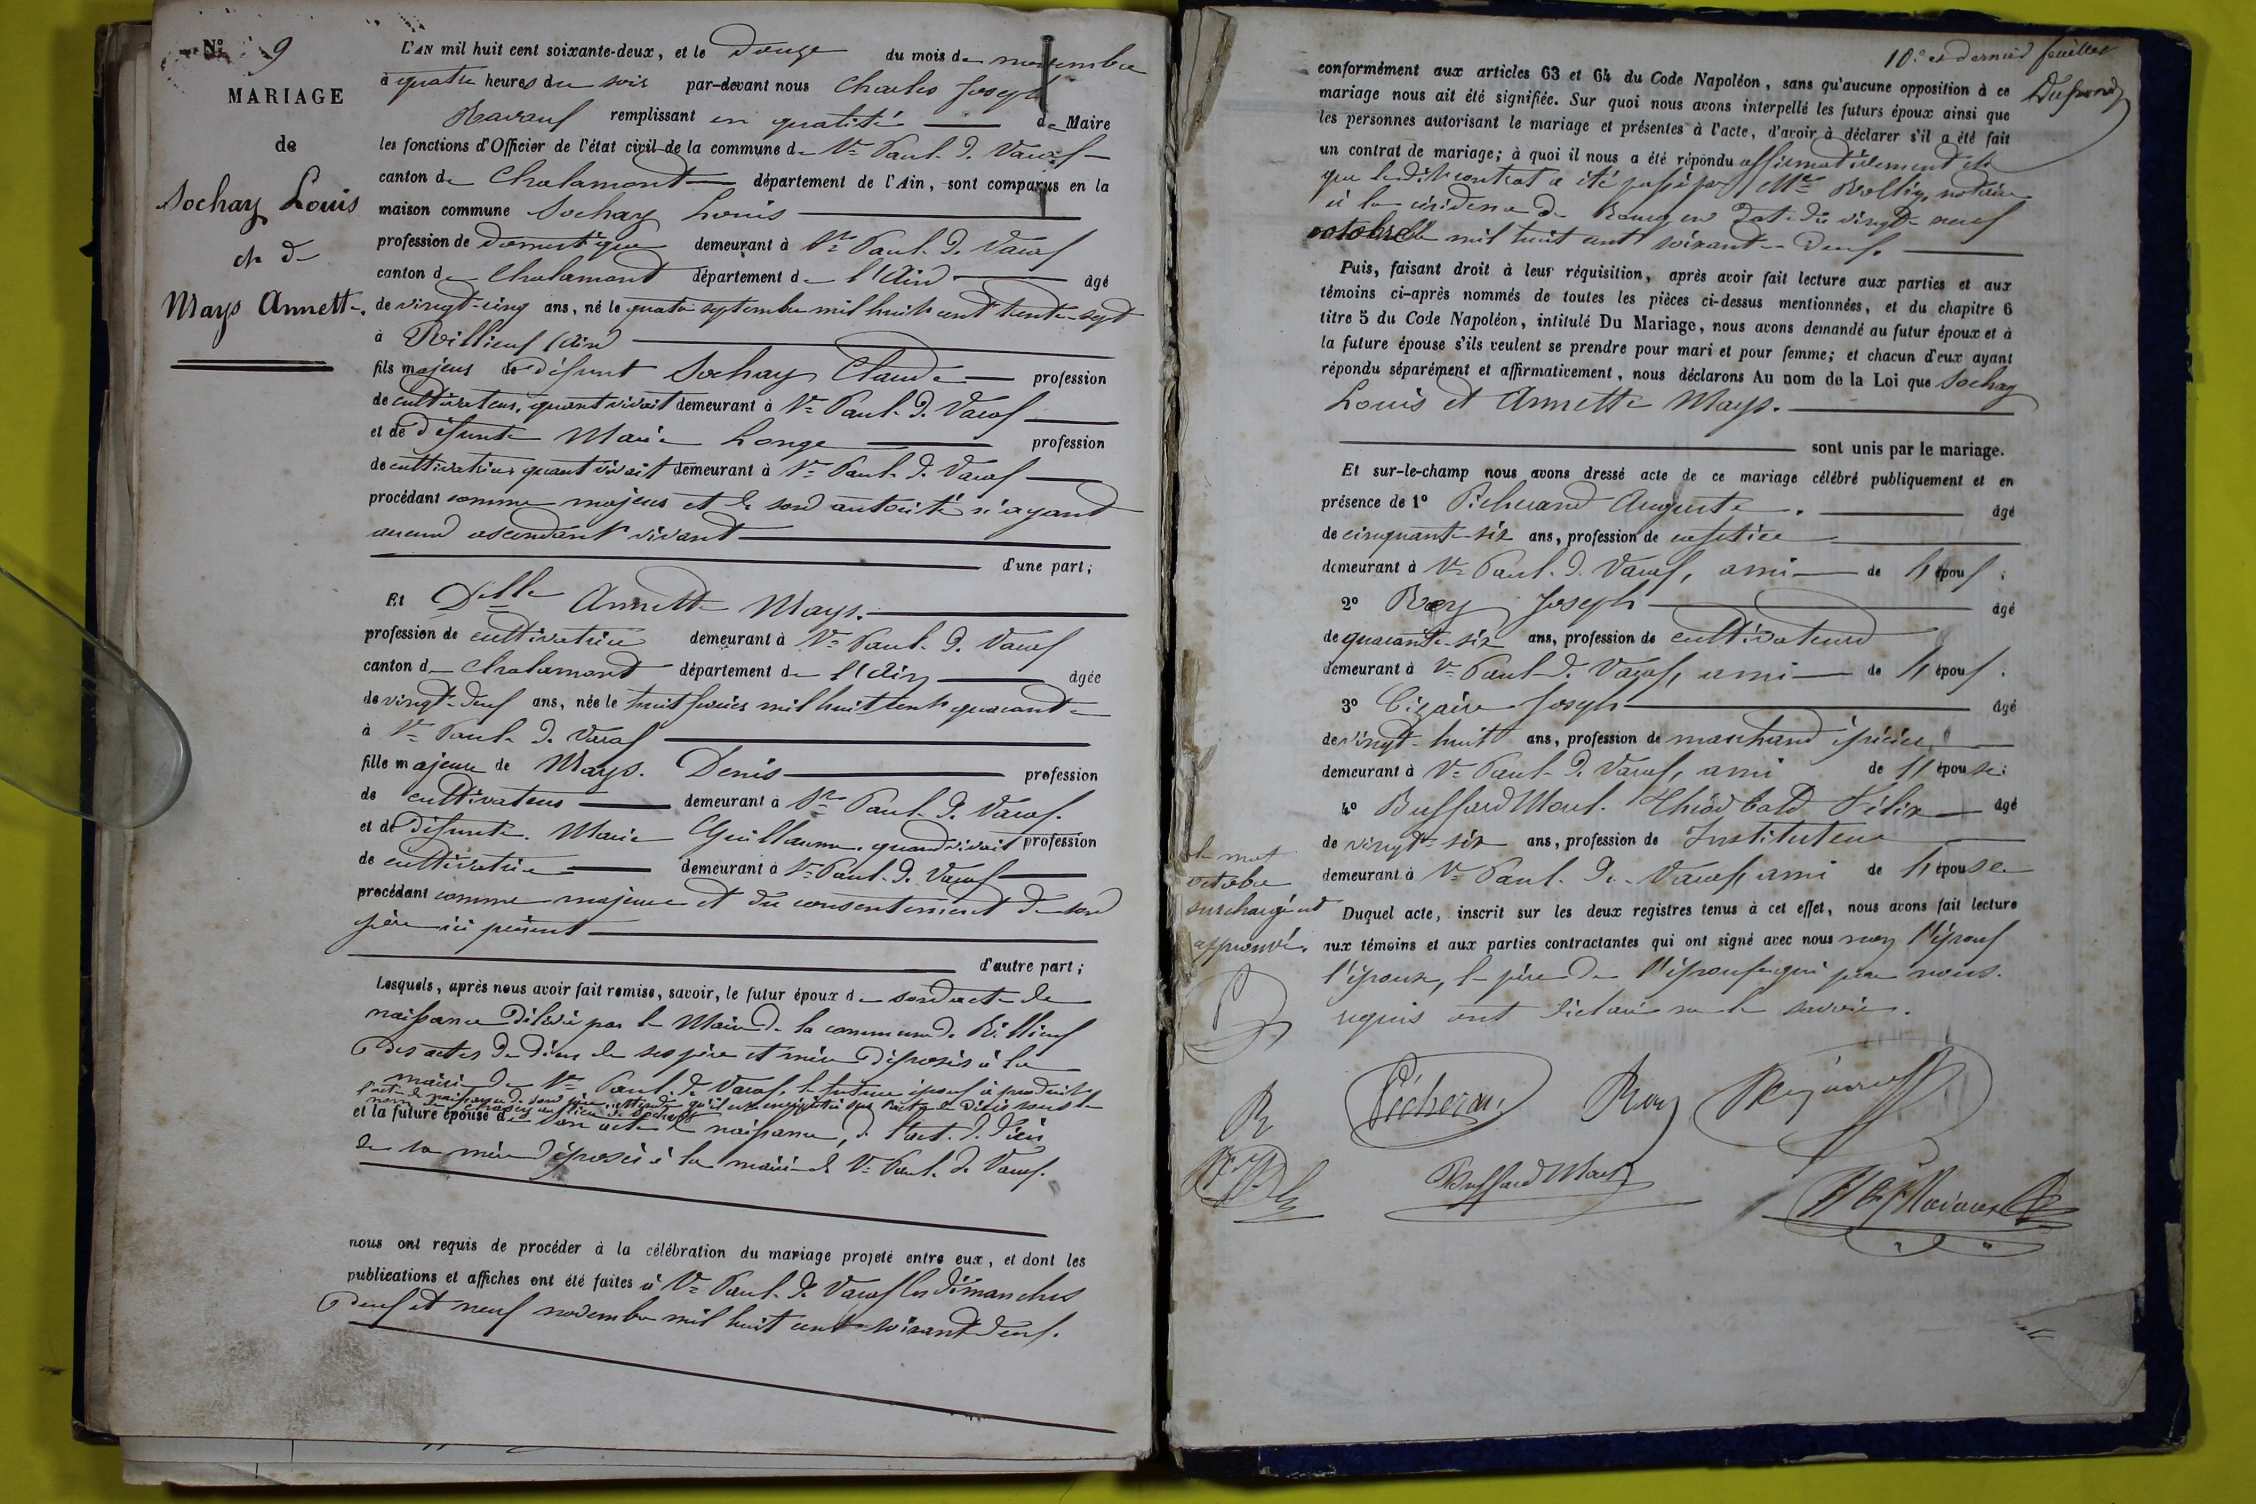 N° 9
MARIAGE
de
Sochay Louis
et de
Mays Annette.
L'AN mil huit cent soixante-deux, et le Douze du mois de novembre
à quatre heures du soir par-devant nous Charles Joseph
remplissant en qualité de Maire
les fonctions d'Officier de l'état civil de la commune de St Paul de Varax
canton de Chalamont département de l'Ain, sont comparus en la
maison commune Sochay Louis
profession de domestique demeurant à St Paul de Varax
canton de Chalamont département de l'Ain âgé
de vingt-cinq ans, né le quatre septembre mil huit cent trente-sept
à Rillieux (Ain)
fils majeur de défunt Sochay Claude profession
de cultivateur, quant vivait demeurant à St Paul de Varax
et de défunte Marie Longe profession
de cultivatrice quant vivait demeurant à St Paul de Varax
procédant comme majeur et de son autorité n'ayant
aucun ascendant vivant
d'une part;
Et Delle Annette Mays.
profession de cultivatrice demeurant à St Paul de Varax
canton de Chalamont département de l'Ain âgée
de vingt-deux ans, née le huit février mil huit cent quarante
à St Paul de Varax
fille majeure de Mays. Denis profession
de cultivateur demeurant à St Paul de Varax.
et de défunte. Marie Guillaume. quand vivait profession
de cultivatrice demeurant à St Paul de Varax
procédant comme majeure et du consentement de son
père ici présent
d'autre part;
Lesquels, après nous avoir fait remise, savoir, le futur époux de son acte de
naissance délivré par le Maire de la commune de Rillieux
Des actes de décès de ses père et mère déposés à la
mairie de St Paul de Varax, le futur époux a produit
l'acte de naissance de son père, attendu qu'il est
nom de au lieu de Sochay
et la future épouse de son acte de naissance, de l'act. de décès
de sa mère déposés à la mairie de St Paul de Varax.
nous ont requis de procéder à la célébration du mariage projeté entre eux, et dont les
publications et affiches ont été faites à St Paul de Varax les dimanches
Deux et neuf novembre mil huit cent soixante deux.
10e et dernier feuillet
conformément aux articles 63 et 64 du Code Napoléon, sans qu'aucune opposition à ce
mariage nous ait été signifiée. Sur quoi nous avons interpellé les futurs époux ainsi que
les personnes autorisant le mariage et présentes à l'acte, d'avoir à déclarer s'il a été fait
un contrat de mariage; à quoi il nous a été répondu affirmativement et
que le dit contrat a été passé par Me notaire
à la résidence de Bourg en date du vingt-neuf
octobre mil huit cent soixante-deux.
Puis, faisant droit à leur réquisition, après avoir fait lecture aux parties et aux
témoins ci-après nommés de toutes les pièces ci-dessus mentionnées, et du chapitre 6
titre 5 du Code Napoléon, intitulé Du Mariage, nous avons demandé au futur époux et à
la future épouse s'ils veulent se prendre pour mari et pour femme; et chacun d'eux ayant
répondu séparément et affirmativement, nous déclarons Au nom de la Loi que Sochay
Louis et Annette Mays.
sont unis par le mariage.
Et sur-le-champ nous avons dressé acte de ce mariage célébré publiquement et en
présence de 1° Picherand Auguste. âgé
de cinquante-six ans, profession de cafetier
demeurant à St Paul de Varax, ami de l'époux;
2° Roy Joseph âgé
de quarante-six ans, profession de cultivateur
demeurant à St Paul de Varax, ami de l'époux.
3° Joseph âgé
de vingt-huit ans, profession de marchand épicier
demeurant à St Paul de Varax, ami de l'épouse;
4° Buffard Morel. Félix âgé
de vingt-six ans, profession de Instituteur
demeurant à St Paul de Varax, ami de l'épouse
Duquel acte, inscrit sur les deux registres tenus à cet effet, nous avons fait lecture
aux témoins et aux parties contractantes qui ont signé avec nous non l'époux
l'épouse, le père de l'épouse qui par nous.
requis ont déclaré ne le savoir.
le mot
octobre
surchargé est
approuvé.
Picherand
Roy
Buffard Morel